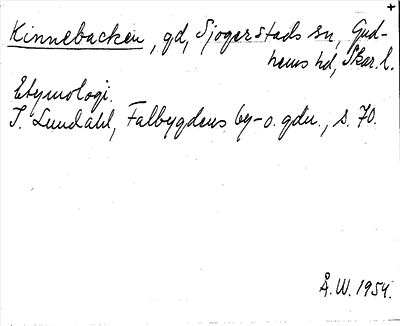 +
Kinnebacken, gd, Sjogerstads sn, Gud-
hems hd, Skar. l.
Etymologi.
I. Lundahl, Falbygdens by- o. gdn., s. 70.
Å.W. 1954.